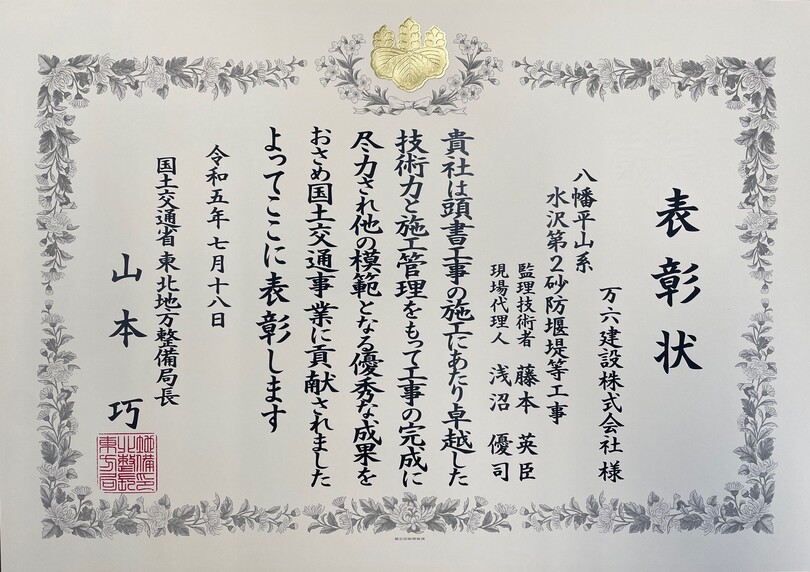 表彰状
万六建設株式会社 様
八幡平山系
水沢第2砂防堰堤等工事
監理技術者 藤本 英臣
現場代理人 浅沼 優司
貴社は頭書工事の施工にあたり卓越した
技術力と施工管理をもって工事の完成に
尽力され他の模範となる優秀な成果を
おさめ国土交通事業に貢献されました
よってここに表彰します
令和五年七月十八日
国土交通省東北地方整備局長
山本 巧